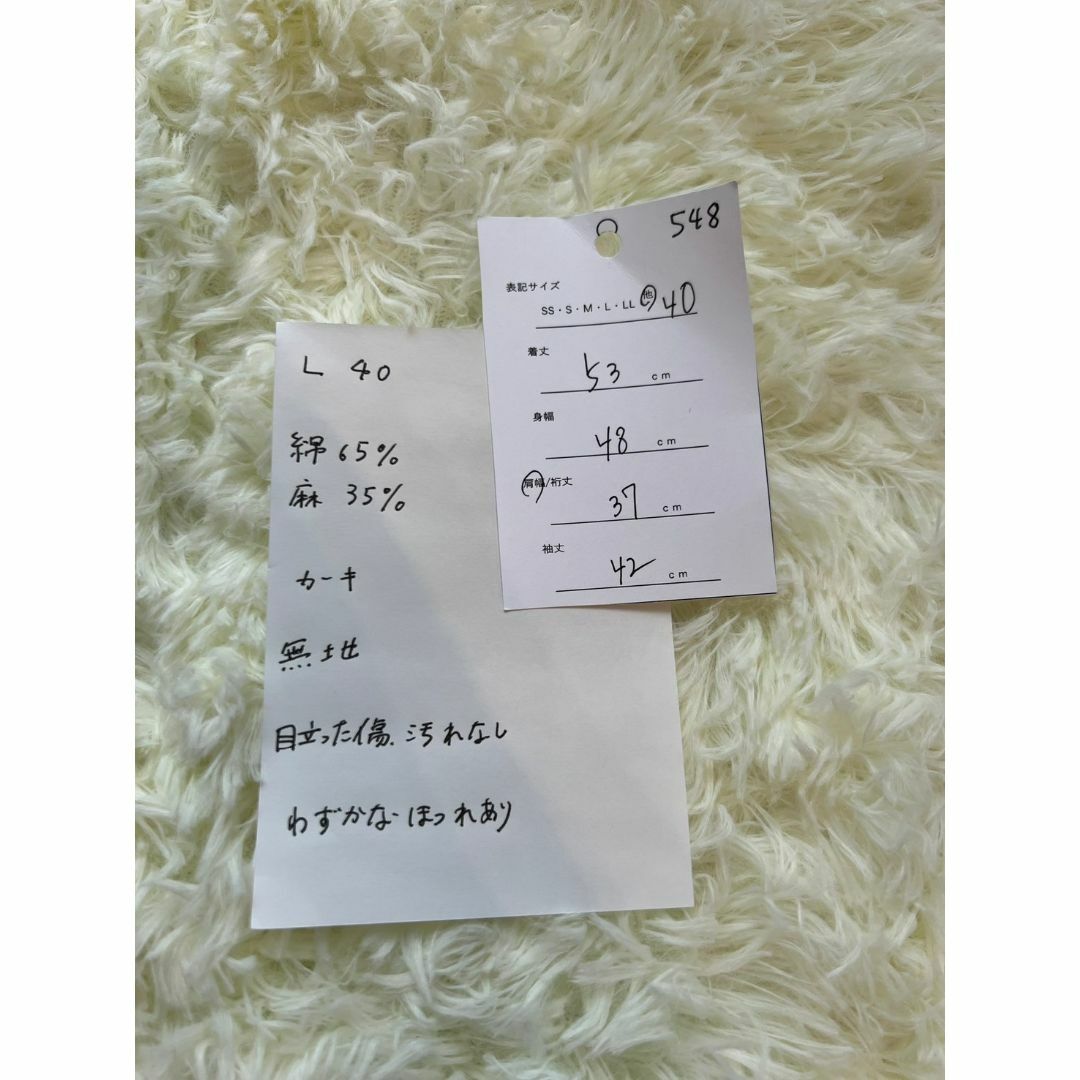 L 40
綿 65%
麻 35%
カーキ
無地
目立った傷、汚れなし
わずかなほつれあり
548
表記サイズ
SS・S・M・L・LL 他 40
着丈
53 cm
身幅
48 cm
肩幅/裄丈
37 cm
袖丈
42 cm